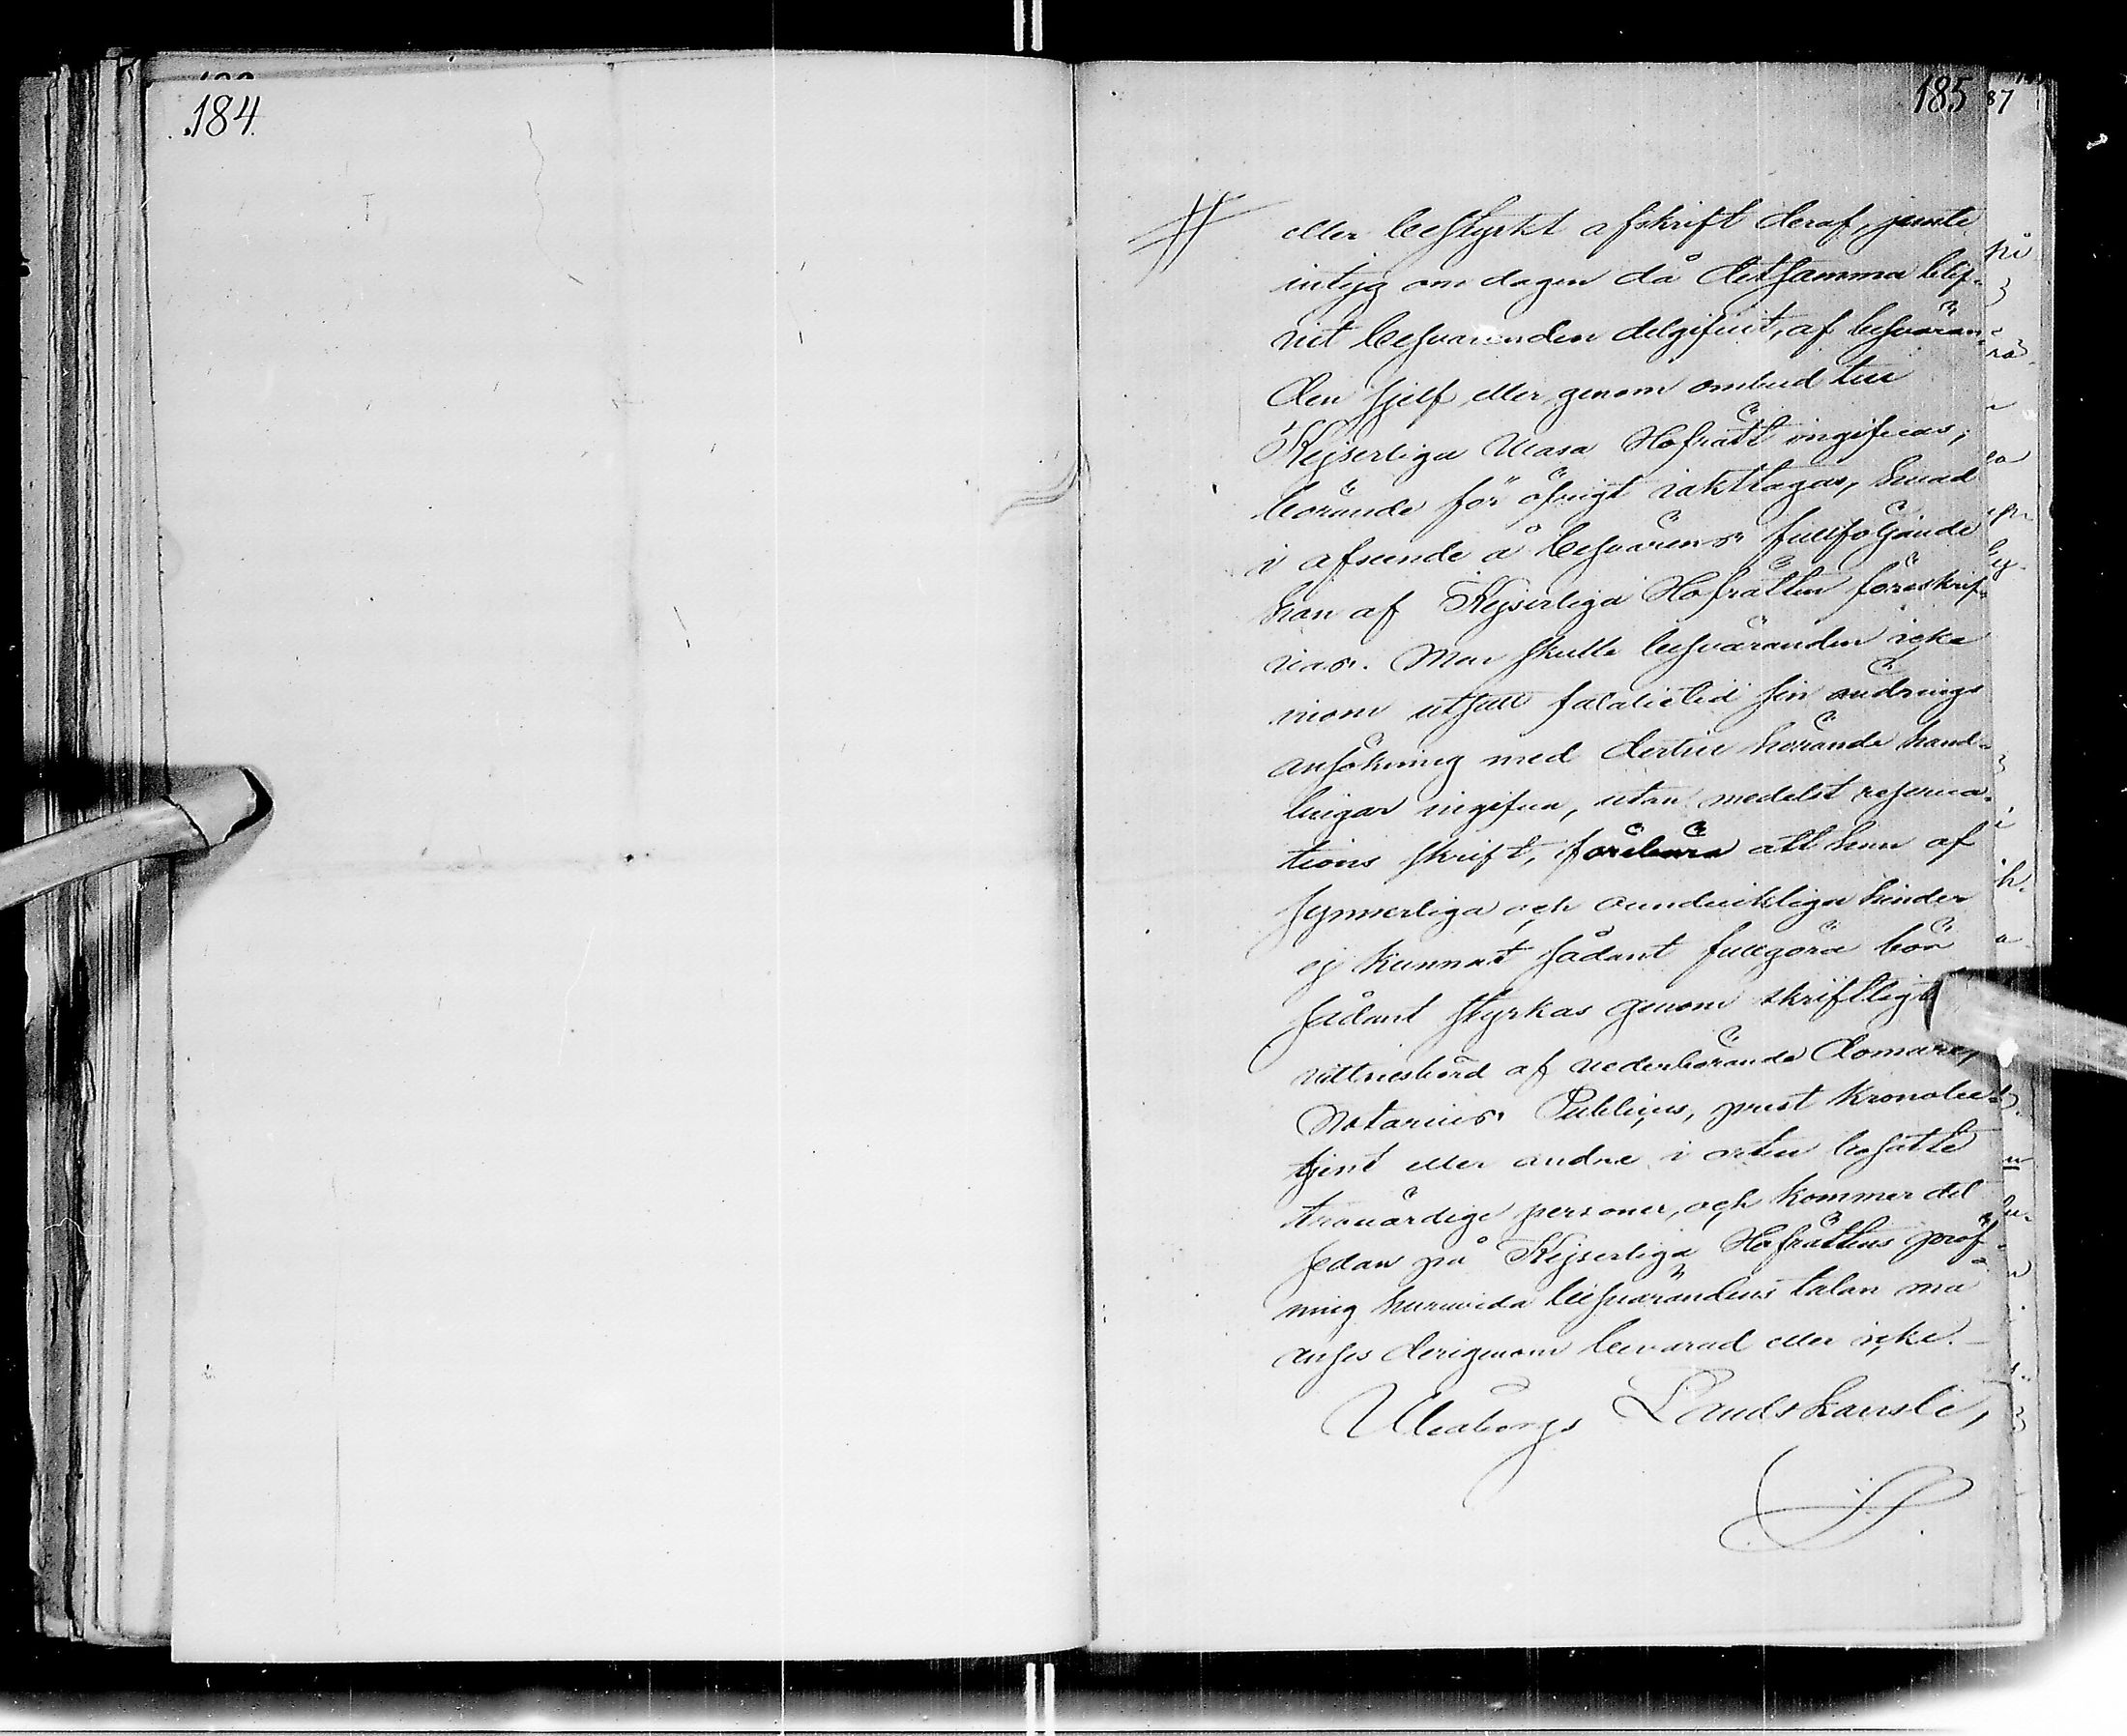 184
185
87
# eller bestyrkt afskrift deraf, jemte
intyg om dagen då detsamma blif-
vit besvaranden delgifvit, af besvären-
den sjelf eller genom ombud till
Kejserliga Wasa Hofrätt ingifvas;
börande för öfrigt iakttagas, hvad
i afseende å besvärens fullföljande
kan af Kejserliga Hofrätten föreskrif-
vas. Men skulle besväranden icke
inom utsatt fatalietid sin ändrings
ansökning med dertill hörande hand-
lingar ingifva, utan medelst reserva-
tions skrift, förebära att han af
synnerliga och oundvikliga hinder
ej kunnat sådant fullgöra bör
sådant styrkas genom skriftligt
vittnesbörd af vederbörande domare,
Notarius Publicus, prest kronobe-
tjent eller andre i orten bosatte
trovärdige personer, och kommer det
sedan på Kejserliga Hofrättens pröf-
ning huruvida besvärandens talan må
anses derigenom bevarad eller icke. —
Uleåborgs Landskansli,